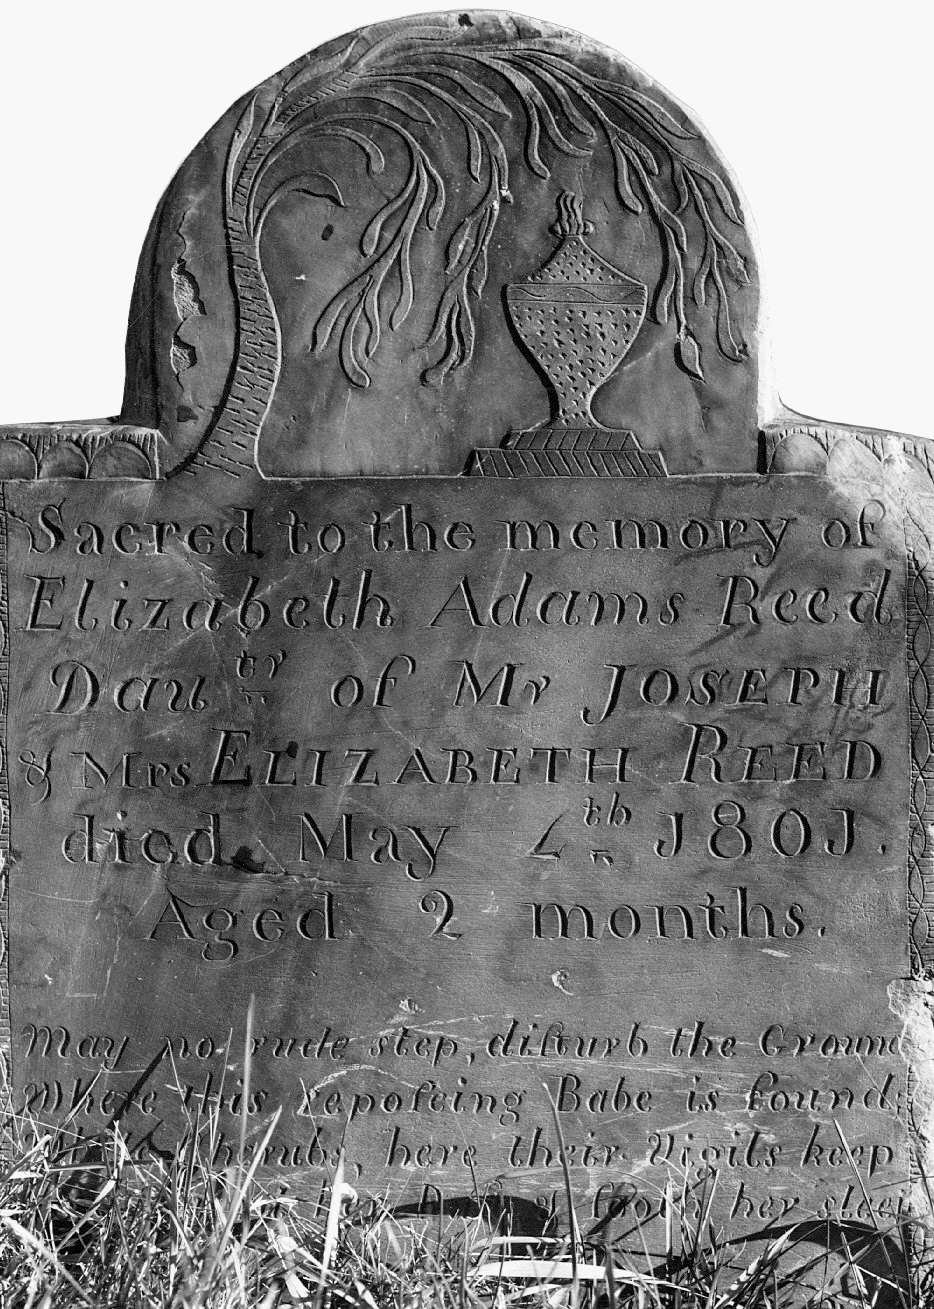 Sacred to the memory of
Elizabeth Adams Reed
Dau.ᵗʳ of Mr JOSEPH
& Mrs ELIZABETH REED
died May 4ᵗʰ 1801.
Aged 2 months.
May no rude step, diſturb the Ground
Where this repoſeing Babe is found,
here their Vigils keep
her & ſooth her sleep